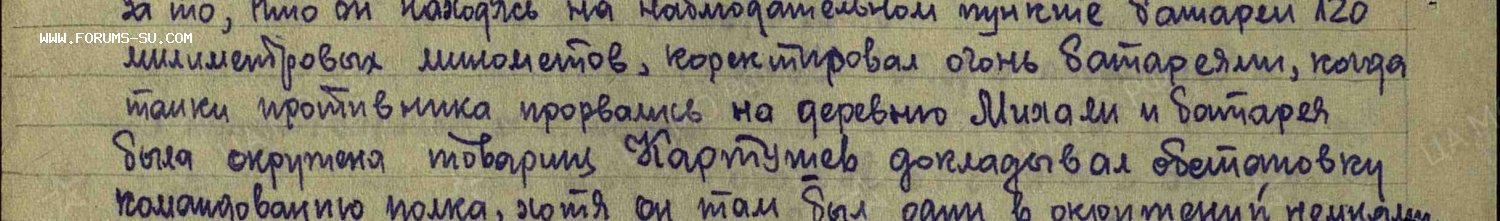 за то, что он находясь на наблюдательном пункте батареи 120
WWW.FORUMS-SU.COM
милиметровых минометов, коректировал огонь батареями, когда
танки противника прорвались на деревню Михали и батарея
была окружена товарищ Картушев докладывал обстановку
командованию полка, хотя он там был один в окружений немцами